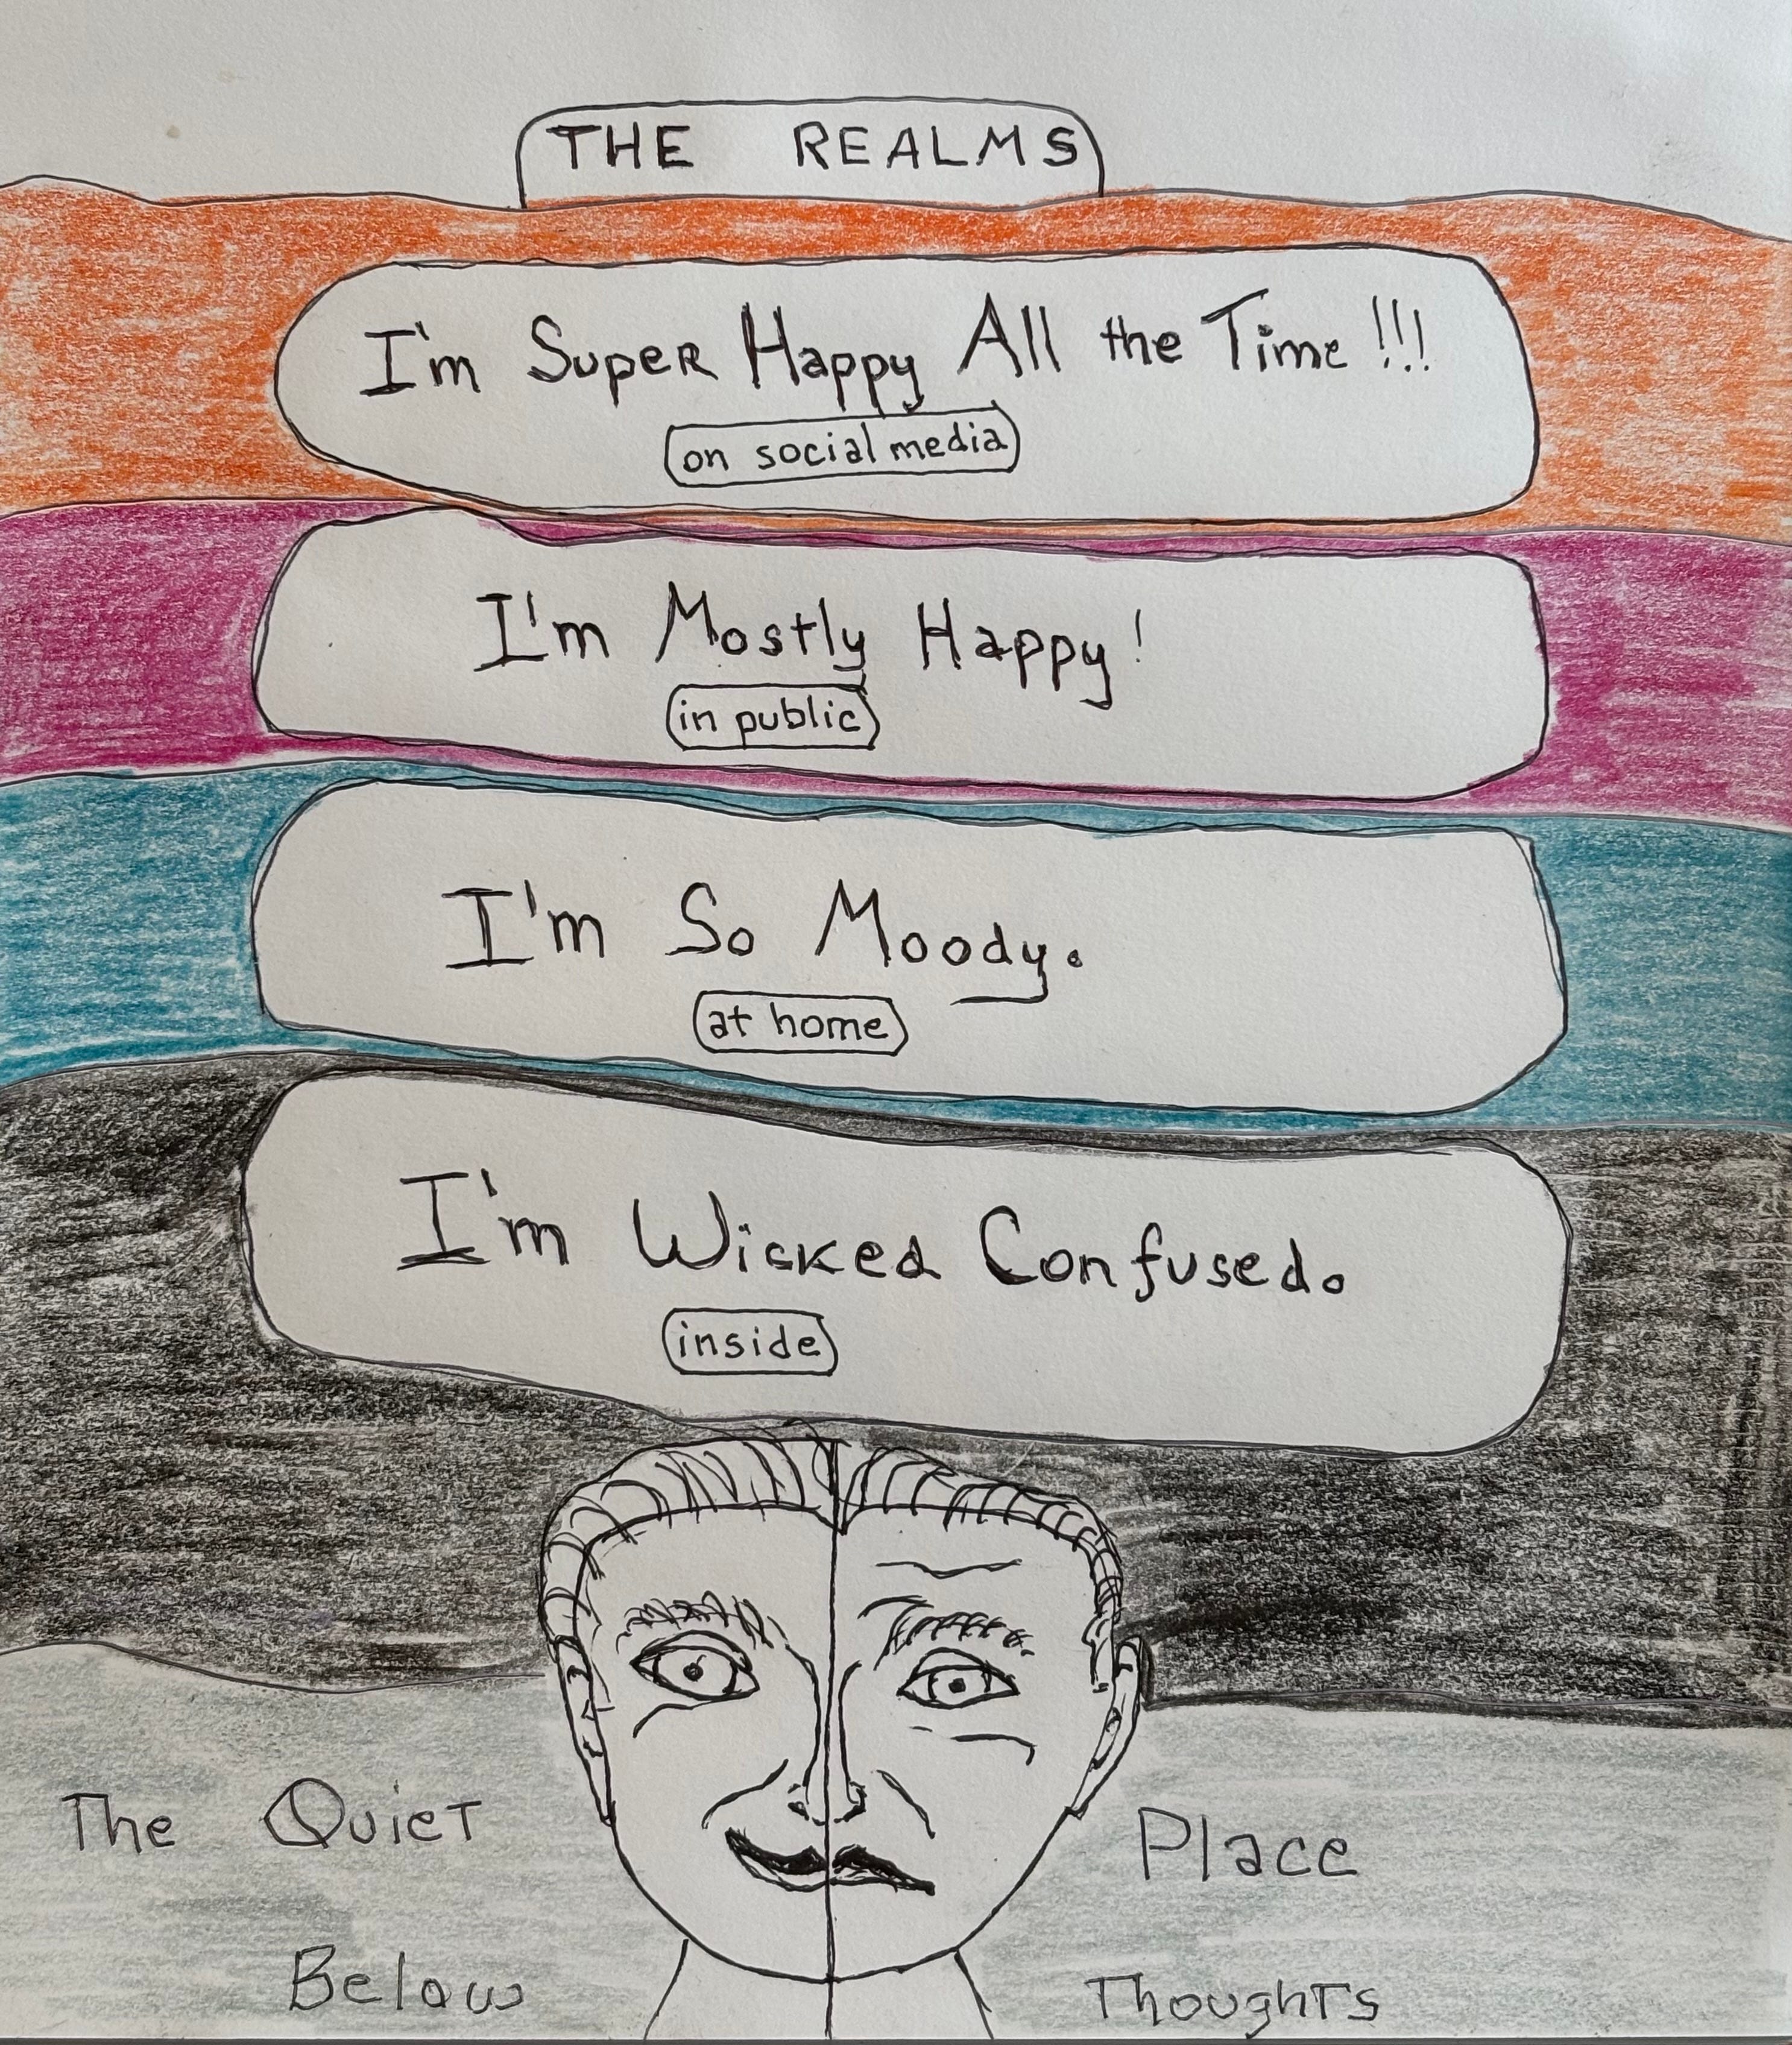 THE REALMS
I'm Super Happy All the Time!!!
on social media
I'm Mostly Happy!
in public
I'm So Moody.
at home
I'm Wicked Confused.
inside
The Quiet Place
Below Thoughts